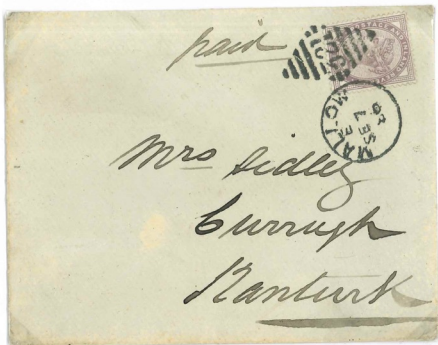 paid
POSTAGE AND INLAND
MALLOW
SE 7
Mrs Sidley
Curragh
Kanturk